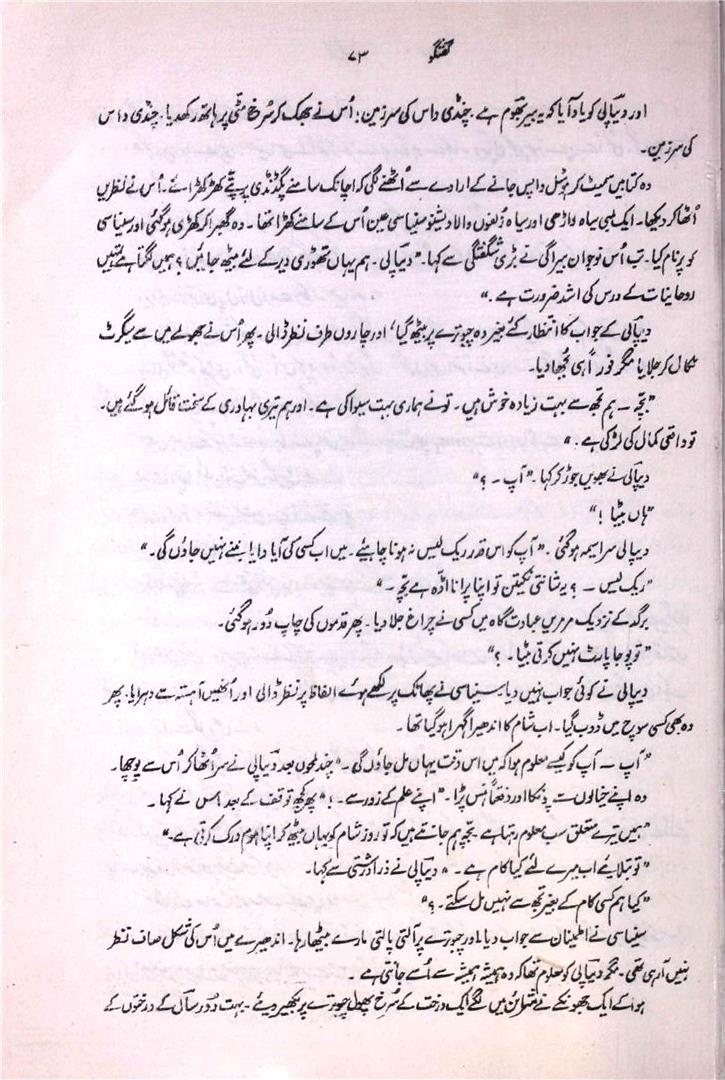 گفتگو ۷۳
اور دیپالی کو یاد آیا کہ یہ بیر بھوم ہے۔ چنڈی داس کی سرزمین؛ اُس نے جھک کر سُرخ مٹی پر ہاتھ رکھ دیا۔ چنڈی داس
کی سرزمین۔
وہ کتابیں سمیٹ کر ہوسٹل واپس جانے کے ارادے سے اُٹھنے لگی کہ اچانک سامنے پگڈنڈی پر پتّے کھڑکھڑائے۔ اُس نے نظریں
اُٹھا کر دیکھا۔ ایک لمبی سیاہ داڑھی اور سیاہ زلفوں والا ویشنو سنیاسی عین اُس کے سامنے کھڑا تھا۔ وہ گھبرا کر کھڑی ہو گئی اور سنیاسی
کو پرنام کیا۔ تب اُس نوجوان بیراگی نے بڑی شگفتگی سے کہا۔ ”دیپالی۔ ہم یہاں تھوڑی دیر کے لئے بیٹھ جائیں؟ ہمیں لگتا ہے تمہیں
روحانیات کے درس کی اشد ضرورت ہے۔“
دیپالی کے جواب کا انتظار کئے بغیر وہ چبوترے پر بیٹھ گیا، اور چاروں طرف نظر ڈالی۔ پھر اُس نے جھولے میں سے سیگرٹ
نکال کر جلایا مگر فوراً ہی بجھا دیا۔
”بچّہ — ہم تجھ سے بہت زیادہ خوش ہیں۔ تو نے ہماری بہت سیوا کی ہے۔ اور ہم تیری بہادری کے سخت قائل ہو گئے ہیں۔
تو واقعی کمال کی لڑکی ہے؛“
دیپالی نے بھویں جوڑ کر کہا۔ ”آپ — ؟“
”ہاں بیٹا !“
دیپالی سراسیمہ ہو گئی۔ ”آپ کو اس قدر ریک لیس نہ ہونا چاہیئے۔ میں اب کسی کی آیا دایا بننے نہیں جاؤں گی۔“
”ریک لیس — ؟ یہ شانتی نکیتن تو اپنا پرانا اڈہ ہے بچّہ۔“
برگد کے نزدیک مرمریں عبادت گاہ میں کسی نے چراغ جلا دیا۔ پھر قدموں کی چاپ دُور ہو گئی۔
”تو پوجا پارٹ نہیں کرتی بیٹا۔ ؟“
دیپالی نے کوئی جواب نہیں دیا۔ سنیاسی نے پھاٹک پر لکھے ہوئے الفاظ پر نظر ڈالی اور اُنھیں آہستہ سے دہرایا۔ پھر
وہ بھی کسی سوچ میں ڈوب گیا۔ اب شام کا اندھیرا گہرا ہو گیا تھا۔
”آپ — آپ کو کیسے معلوم ہوا کہ میں اس وقت یہاں مل جاؤں گی۔“ چند لمحوں بعد دیپالی نے سر اُٹھا کر اُس سے پوچھا۔
وہ اپنے خیالوں سے چونکا اور دفعتاً ہنس پڑا۔ ”اپنے علم کے زور سے۔ !“ پھر کچھ توقف کے بعد اس نے کہا۔
”ہمیں تیرے متعلق سب معلوم رہتا ہے۔ بچّہ ہم جانتے ہیں کہ تو روز شام کو یہاں بیٹھ کر اپنا ہوم ورک کرتی ہے۔“
”تو بتلایئے اب میرے لئے کیا کام ہے۔“ دیپالی نے ذرا درشتی سے کہا۔
”کیا ہم کسی کام کے بغیر تجھ سے نہیں مل سکتے۔ ؟“
سنیاسی نے اطمینان سے جواب دیا، اور چبوترے پر آلتی پالتی مارے بیٹھا رہا۔ اندھیرے میں اُس کی شکل صاف نظر
نہیں آ رہی تھی۔ مگر دیپالی کو معلوم تھا کہ وہ ہمیشہ ہمیشہ سے اُسے جانتی ہے۔
ہوا کے ایک جھونکے نے میں لگے ایک درخت کے سُرخ پھول چبوترے پر بکھیر دیئے۔ بہت دُور سال کے درختوں کے